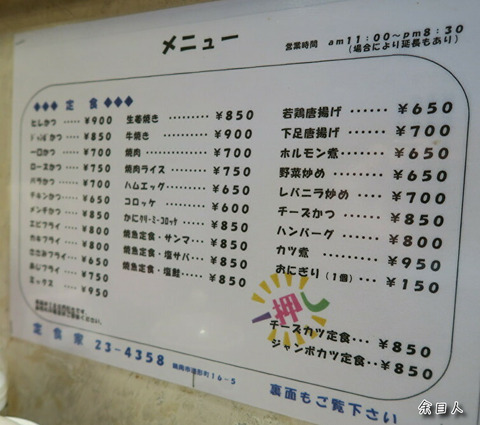 メニュー
営業時間 am11:00～pm8:30
(場合により延長もあり)
◆◆◆ 定 食 ◆◆◆
ヒレかつ ····· ￥900
ｼﾞｬﾝﾎﾞかつ ··· ￥850
一口かつ ···· ￥700
ロースかつ ···· ￥750
バラかつ ····· ￥700
チキンかつ ···· ￥650
メンチかつ ···· ￥850
エビフライ ···· ￥800
カキフライ ···· ￥800
ささみフライ ··· ￥650
あじフライ ···· ￥750
ミックス ····· ￥950
生姜焼き ······ ￥850
牛焼き ······· ￥900
焼肉 ········ ￥700
焼肉ライス ····· ￥750
ハムエッグ ····· ￥650
コロッケ ······ ￥600
かにｸﾘｰﾐｰｺﾛｯｹ ···· ￥850
焼魚定食・サンマ··· ￥850
焼魚定食・塩サバ··· ￥850
焼魚定食・塩鮭···· ￥850
若鶏唐揚げ ······ ￥650
下足唐揚げ ····· ￥700
ホルモン煮 ····· ￥650
野菜炒め ······ ￥650
レバニラ炒め ···· ￥700
チーズかつ ····· ￥850
ハンバーグ ····· ￥800
カツ煮 ······· ￥950
おにぎり（１個）··· ￥150
チーズカツ定食··· ￥850
ジャンボカツ定食·· ￥850
定 食 家 23-4358 鶴岡市道形町16-5
裏面もご覧下さい
余目人